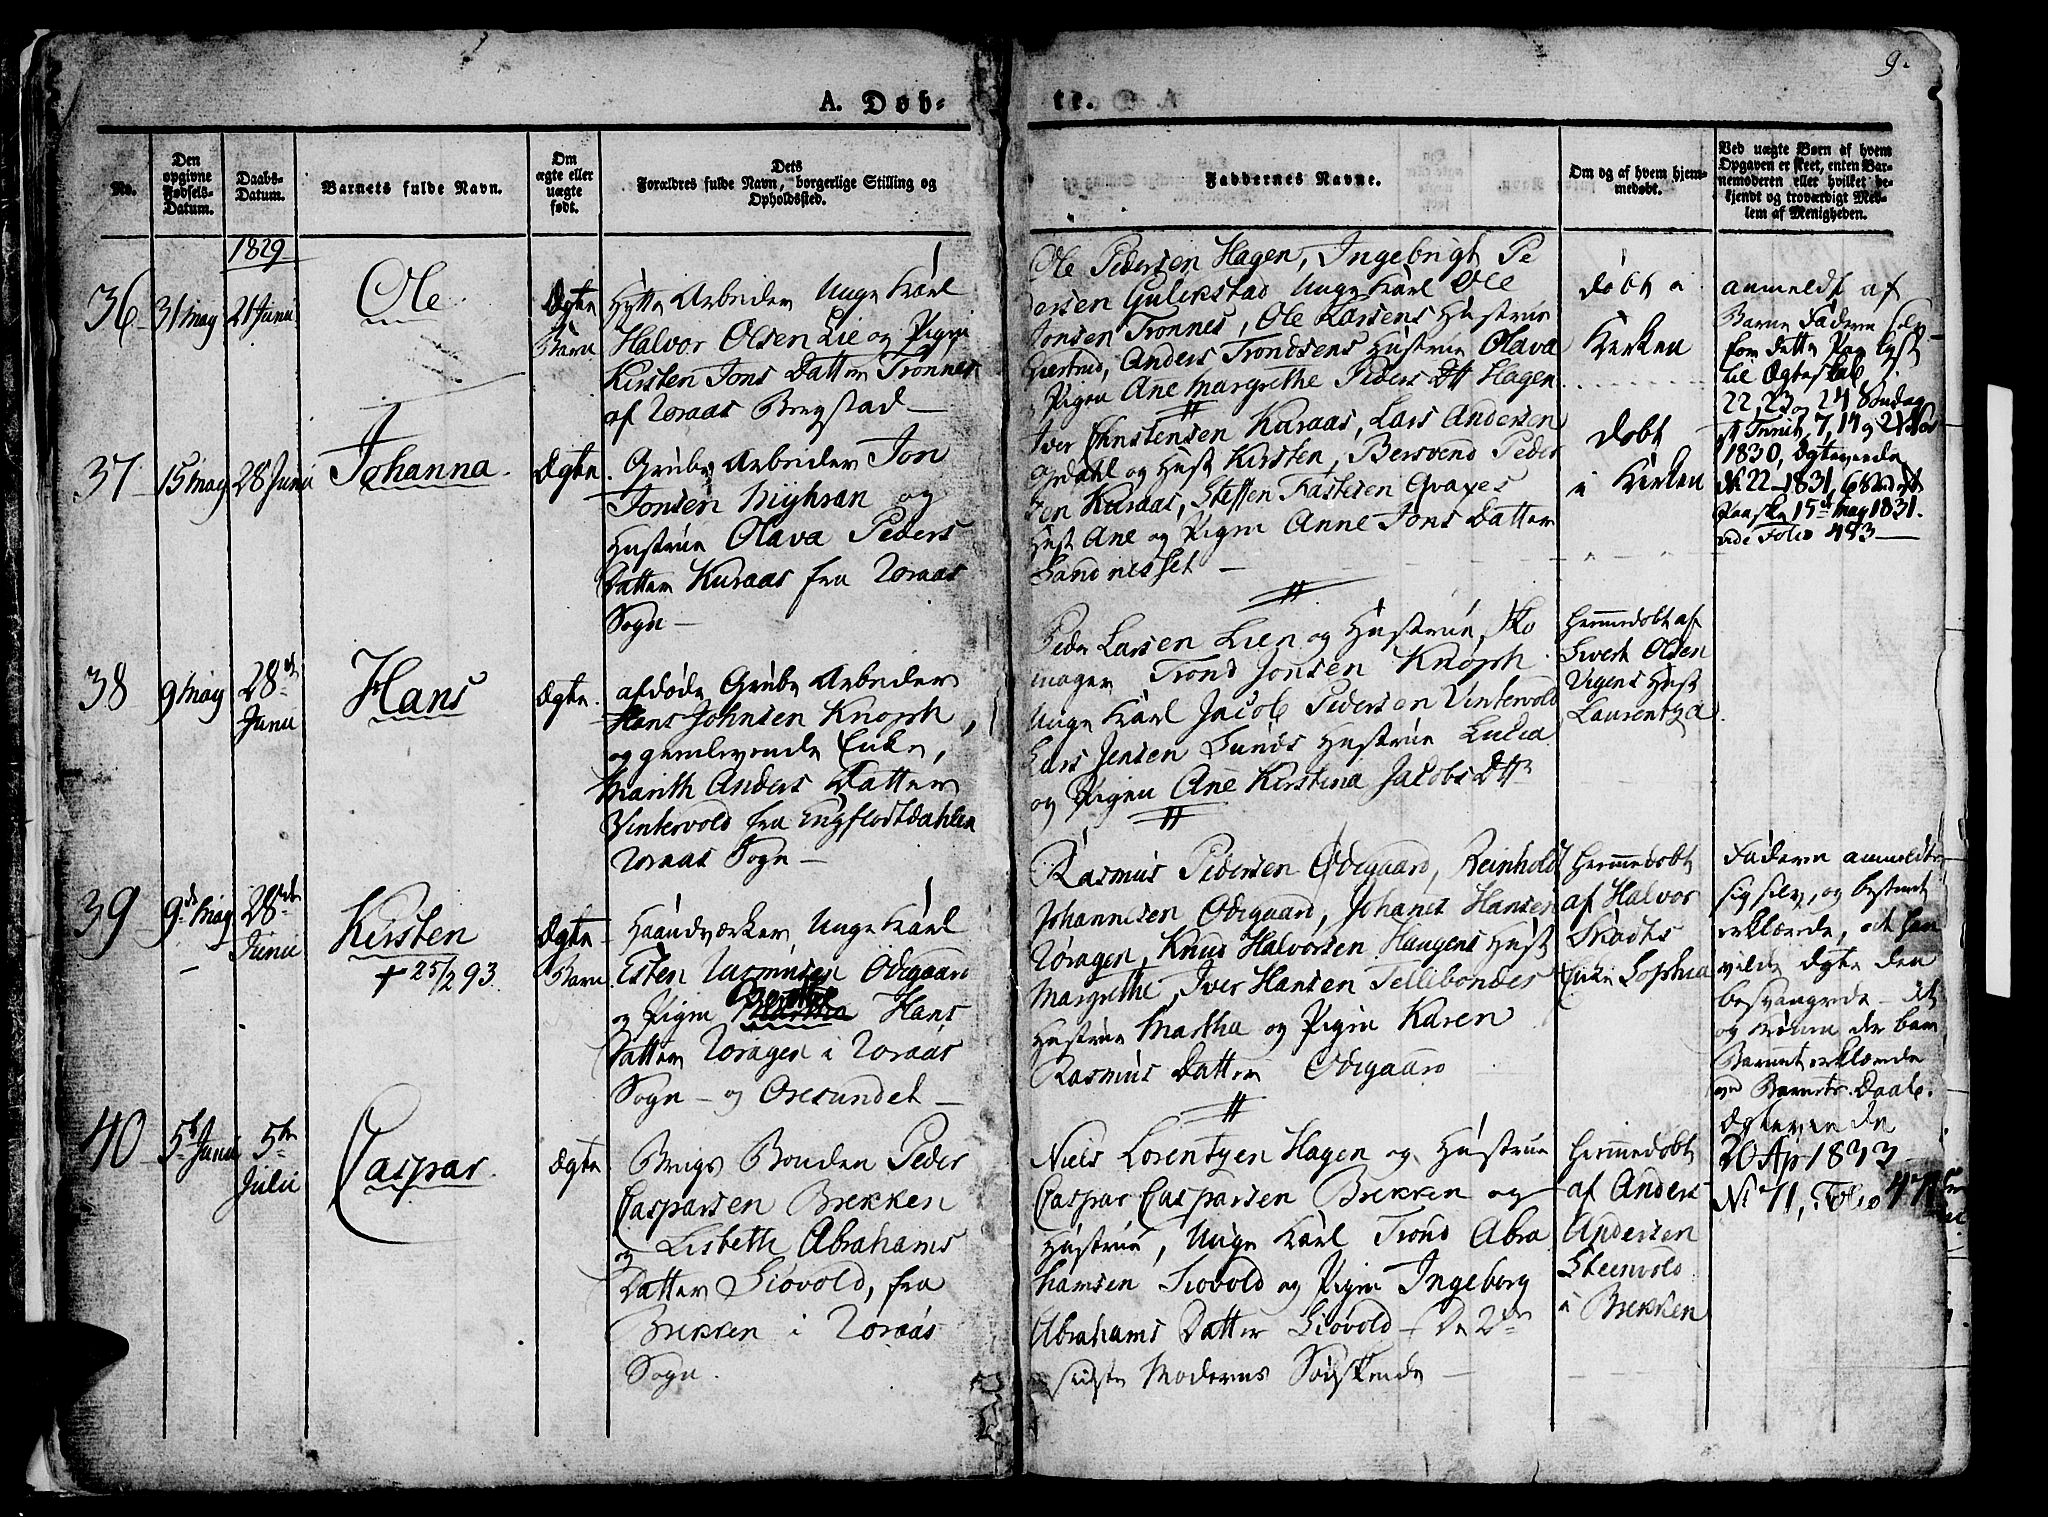 9.
A. Døb-
te.
No.
Den
opgivne
Fødsels-
Datum.
Daabs-
Datum.
Barnets fulde Navn.
Om
ægte eller
uægte
født.
Dets
Forældres fulde Navn, borgerlige Stilling og
Opholdssted.
Faddernes Navne.
Om og af hvem hjem-
medøbt.
Ved uægte Børn af hvem
Opgaven er skeet, enten Bar-
nemoderen eller hvilket be-
kjendt og troværdigt Med-
lem af Menigheden.
1829
36
31 may
21 Junii
Ole
Ægte
Barn
Hytte Arbeider Unge Karl
Halvor Olsen Lie og Pigen
Kirsten Jons Datter Tronnes
af Røraas Bergstad
Ole Pedersen Hagen, Ingebrigt Pe
dersen Gulikstad Unge Karl Ole
Jonsen Tronnes, Ole Larsens Hustrue
Giertrud, Anders Trondsens Hustrue Olava
Pigen Ane Margrethe Peders Dtt Hagen
døbt i
Kirken
anmeldt af
Barne Faderen selv
for dette Par lyst
til Ægteskab
22, 23, 24 Søndag
Trinit, 7, 14 og 21
1830, Ægteviede
No 22 1831, 6 Søndag
Paaske 15de May 1831.
vide Folio 453
37
15 may
28 Junii
Johanna
Ægte
Grube Arbeider Jon
Jonsen Myhran og
Hustrue Olava Peders
Datter Kuraas fra Røraas
Sogn
Iver Christensen Kuraas, Lars Andersen
Opdahl og Hust Kirsten, Bersvend Peder
sen Kuraas, Steffen
Hust Ane og Pigen Anne Jons Datter
Sandnesset
døbt
i Kirken
38
9 may
28de
Junii
Hans
Ægte
afdøde Grube Arbeider
Hans Johnsen Knoph,
og genlevende Enke,
Marith Anders Datter
Vintervold fra
Røraas Sogn
Peder Larsen Lien og Hustrue, Sko
mager Trond Jonsen Knoph
Unge Karl Jacob Pedersen Vintervold
Lars Jensen Sunds Hustrue Lucia
og Pigen Ane Kirstina Jacobs Dtt
Hiemmedøbt af
Sivert Olsen
Vigens Hust
Laurentza
39
9de may
28de
Junii
Kirsten
+ 25/2 93.
Ægte
Barn
Haandværker, Unge Karl
Esten Rasmusen Ødegaard
og Pigen Berethe Hans
Datter Røragen i Røraas
Sogn og Oresundet
Rasmus Pedersen Ødegaard, Reinhold
Johannesen Ødegaard, Johanes Hansen
Røragen, Knud Halvorsen Haugens Hust
Margrethe, Iver Hansen Tellebondes
Hustrue Martha og Pigen Karen
Rasmus Datter Ødegaard
Hiemmedøbt
af Halvor
Skødts
Enke Sophia
Faderen anmeldte
sig selv, og bestemt
erklærede, at han
vilde Ægte den
besvangrede
og Barn
Barnet erklærede
ved Barnets Daab.
Ægteviede
20 Ap 1833
No 11, Folio
40
5te Junii
5te
Julii
Caspar
Ægte
Brugs Bonden Peder
Caspersen Brekken
og Lisbeth Abrahams
Datter Siøvold, fra
Brekken i Røraas
Sogn.
Niels Lorentzen Hagen og Hustrue
Caspar Casparsen Brekken og
Hustrue, Unge Karl Trond Abra
hamsen Siøvold og Pigen Ingeborg
Abrahams Datter Siøvold De 2de
sidste Moderens Sødskende
Hiemmedøbt
af Anders
Andersen
Steenvold
i Brekken